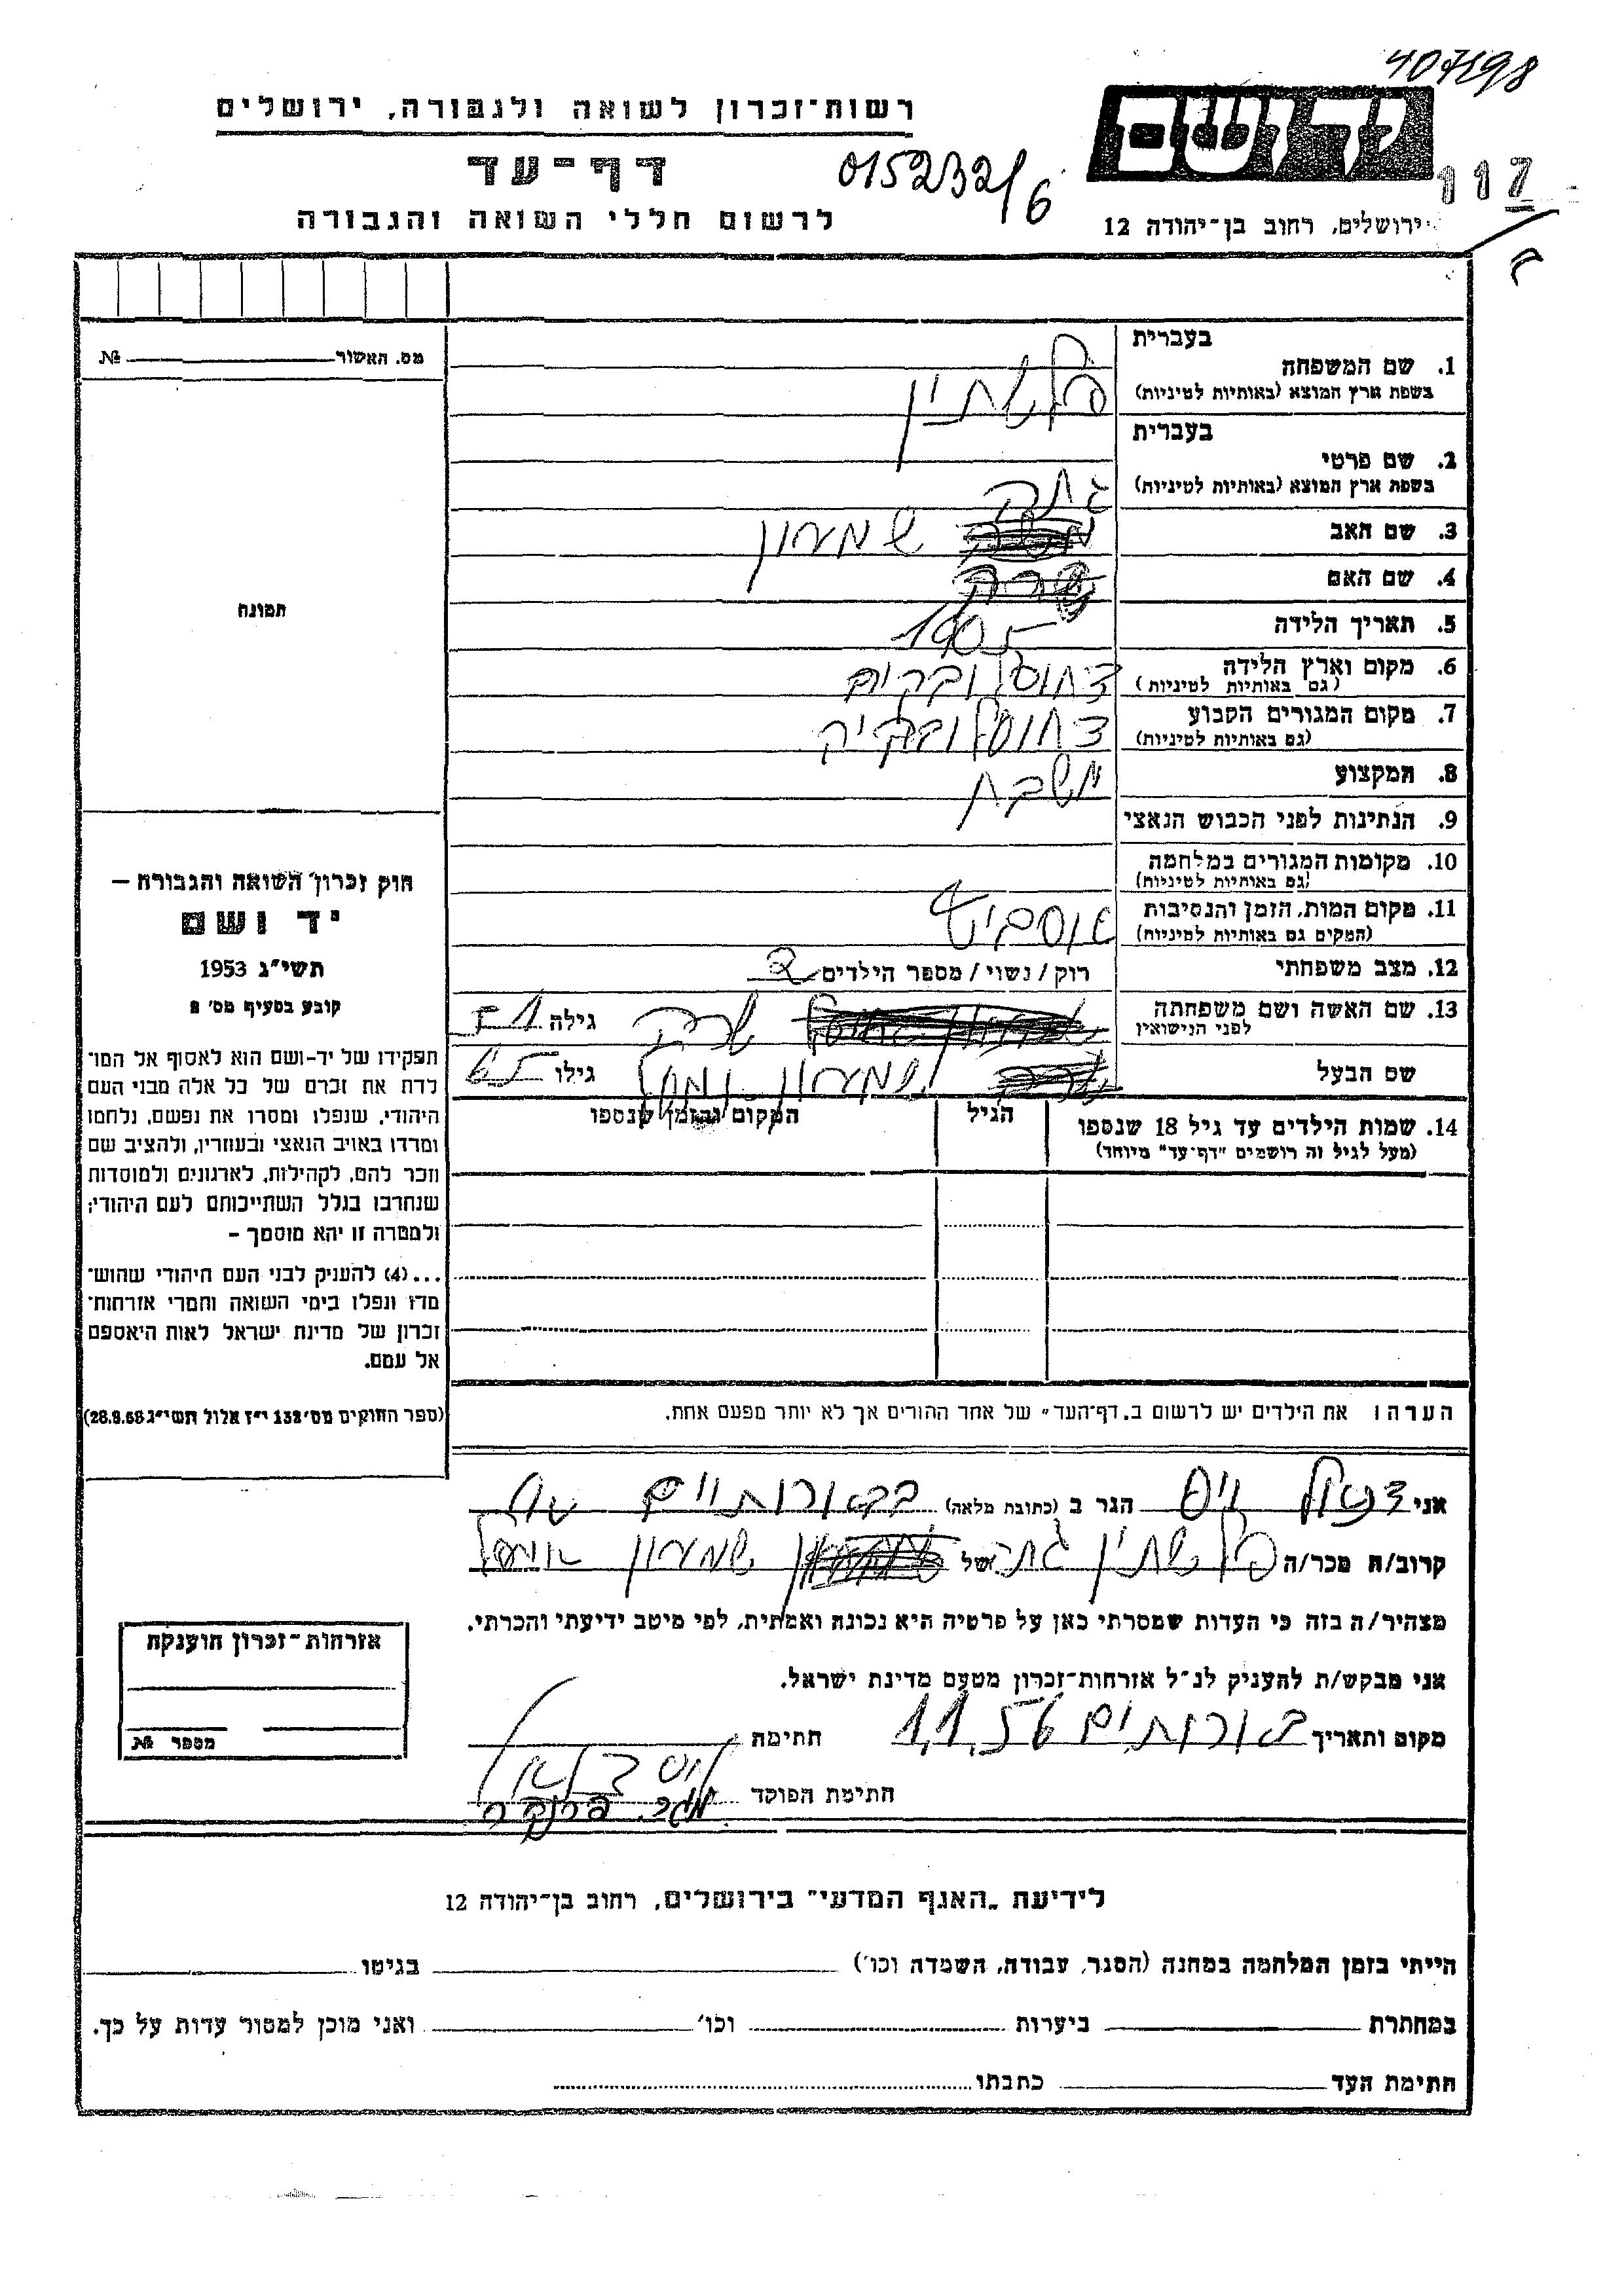 407198
רשות־זכרון לשואה ולגבורה, ירושלים
יד ושם
דף־עד
015232/6
117
לרשום חללי השואה והגבורה
ירושלים, רחוב בן־יהודה 12
מס. האשור №
בעברית
1. שם המשפחה
בשפת ארץ המוצא (באותיות לטיניות)
בעברית
2. שם פרטי
בשפת ארץ המוצא (באותיות לטיניות)
3. שם האב שמעון
4. שם האם שרה
5. תאריך הלידה 1905
6. מקום וארץ הלידה
(גם באותיות לטיניות)
7. מקום המגורים הקבוע
(גם באותיות לטיניות)
8. המקצוע
9. הנתינות לפני הכבוש הנאצי
10. מקומות המגורים במלחמה
(גם באותיות לטיניות)
11. מקום המות, הזמן והנסיבות
(המקים גם באותיות לטיניות)
12. מצב משפחתי רוק/נשוי/מספר הילדים
13. שם האשה ושם משפחתה שרה גילה
לפני הנישואין
שם הבעל שמעון גילו
14. שמות הילדים עד גיל 18 שנספו הגיל המקום והזמן שנספו
(מעל לגיל זה רושמים "דף־עד" מיוחד)
תמונה
חוק זכרון השואה והגבורה —
יד ושם
תשי"ג 1953
קובע בסעיף מס' 2
תפקידו של יד-ושם הוא לאסוף אל המו־
לדת את זכרם של כל אלה מבני העם
היהודי, שנפלו ומסרו את נפשם, נלחמו
ומרדו באויב הנאצי ובעוזריו, ולהציב שם
וזכר להם, לקהילות, לארגונים ולמוסדות
שנחרבו בגלל השתייכותם לעם היהודי;
ולמטרה זו יהא מוסמך —
...(4) להעניק לבני העם היהודי שהוש־
מדו ונפלו בימי השואה והמרי אזרחות־
זכרון של מדינת ישראל לאות היאספם
אל עמם.
(ספר החוקים מס' 132 י"ז אלול תשי"ג 28.8.53)
הערה: את הילדים יש לרשום ב„דף־העד" של אחד ההורים אך לא יותר מפעם אחת.
אני דניאל וייס הגר ב (כתובת מלאה)
קרוב/ה מכר/ה של שמעון
מצהיר/ה בזה כי העדות שמסרתי כאן על פרטיה היא נכונה ואמתית, לפי מיטב ידיעתי והכרתי.
אני מבקש/ת להעניק לנ"ל אזרחות־זכרון מטעם מדינת ישראל.
מקום ותאריך 1.1.56 חתימה
חתימת הפוקד
אזרחות־זכרון הוענקה
מספר №
לידיעת „האגף המדעי" בירושלים, רחוב בן־יהודה 12
הייתי בזמן המלחמה במחנה (הסגר, עבודה, השמדה וכו') בגיטו
במחתרת ביערות וכו' ואני מוכן למסור עדות על כך.
חתימת העד כתבתו